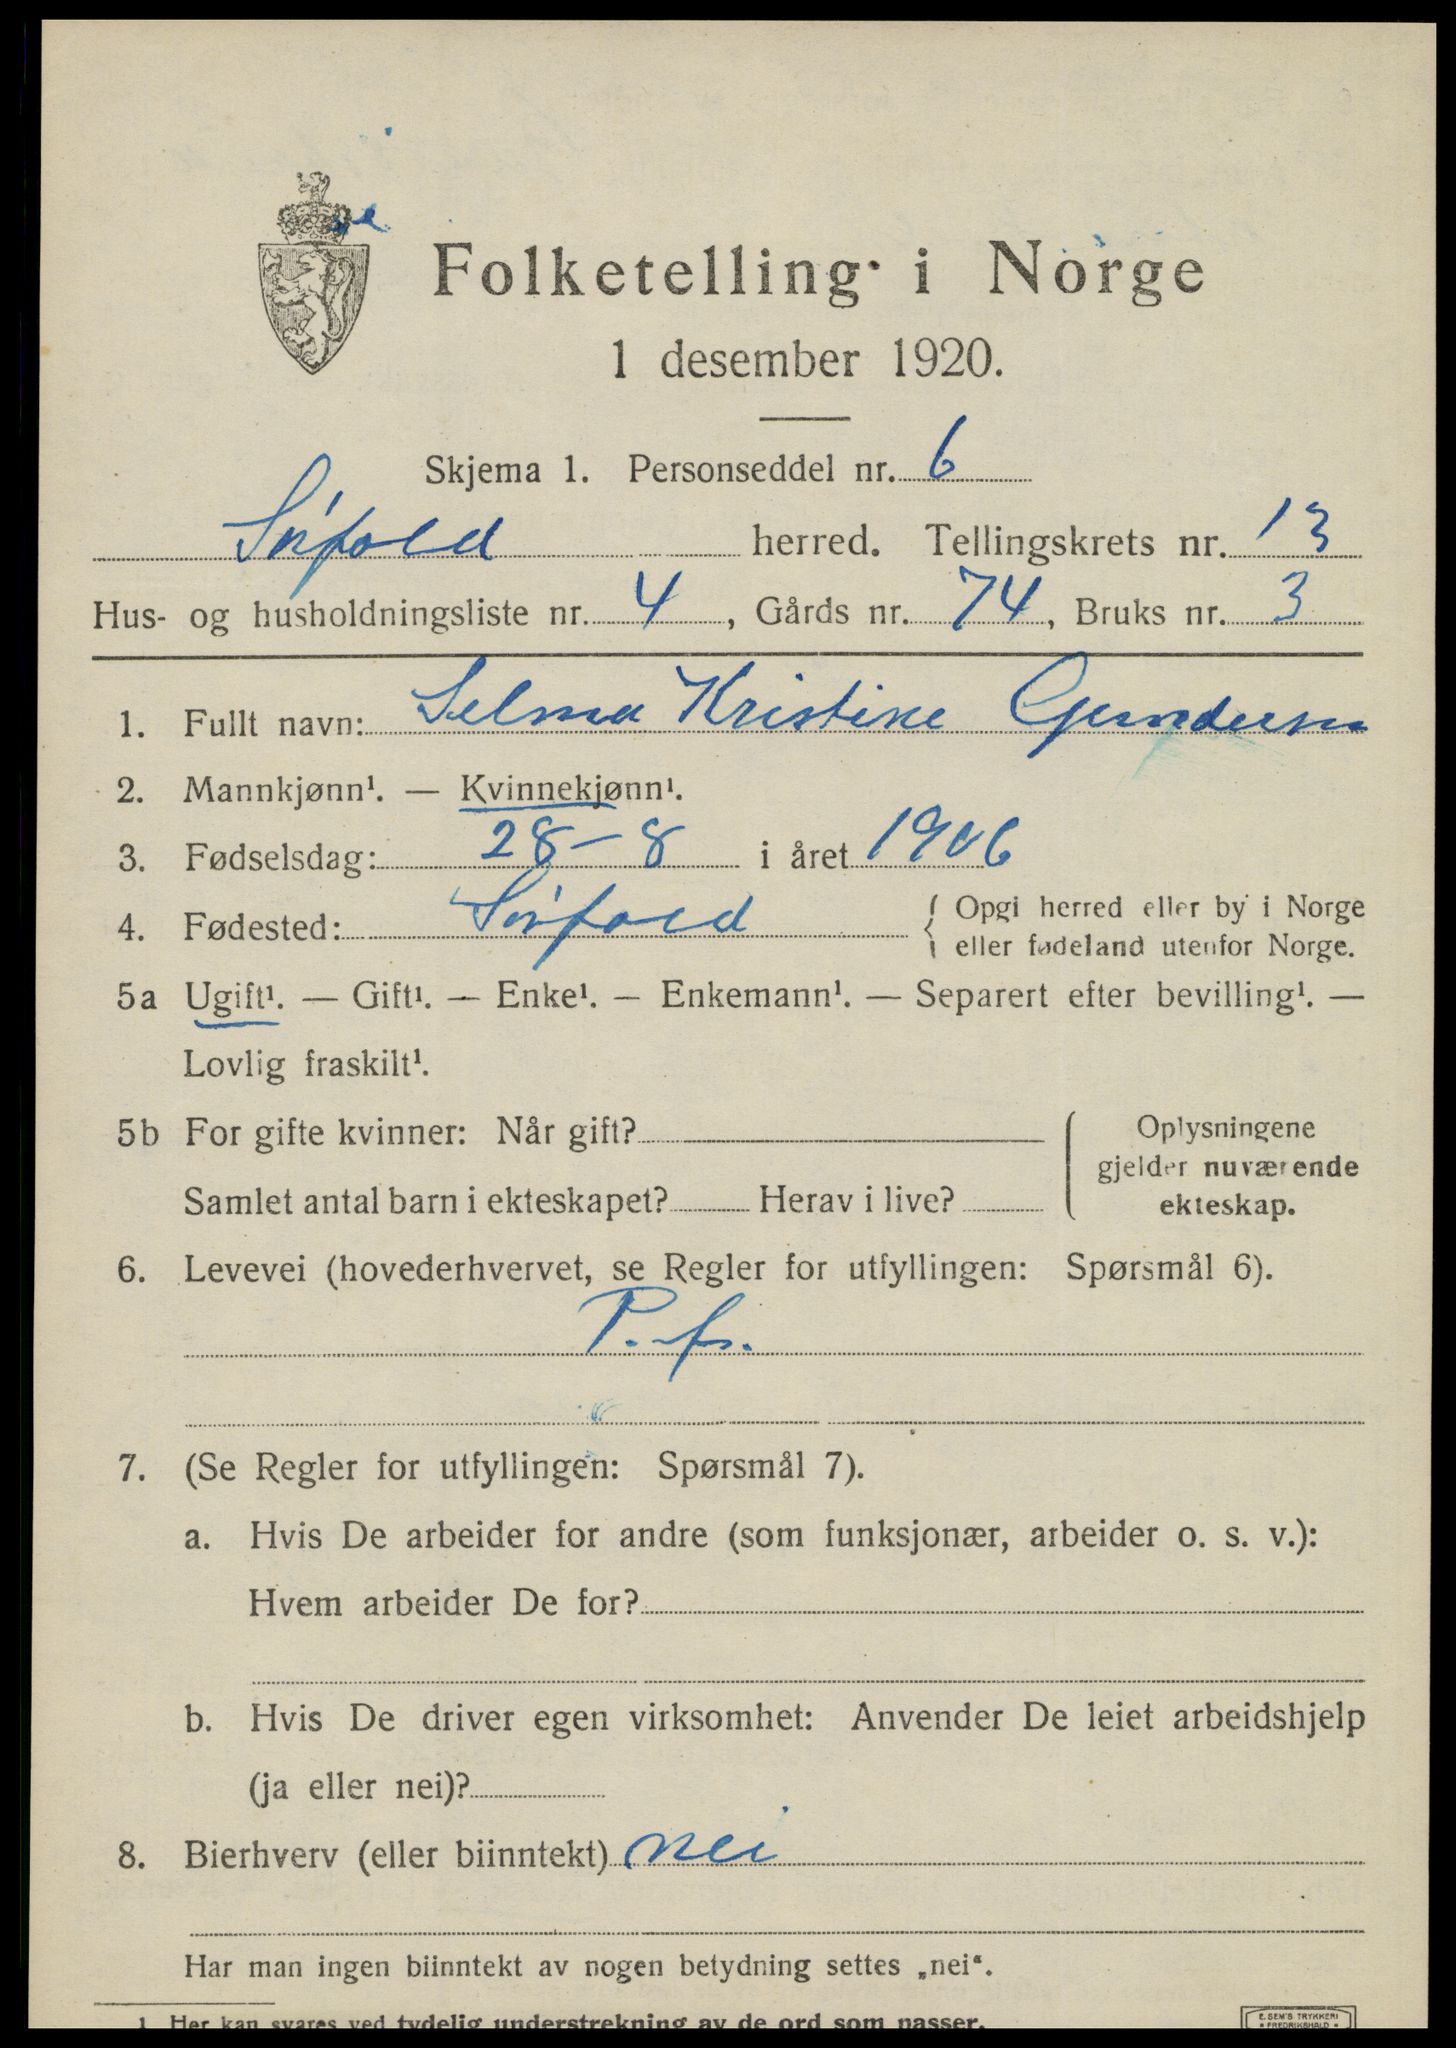 Folketelling i Norge
1 desember 1920.
Skjema 1. Personseddel nr. 6
Sörfold herred. Tellingskrets nr. 13
Hus- og husholdningsliste nr. 4, Gårds nr. 74, Bruks nr. 3
1. Fullt navn: Selma Kristine Gundersen
2. Mannkjønn¹. — Kvinnekjønn¹.
3. Fødselsdag: 28 – 8 i året 1906
4. Fødested: Sörfold { Opgi herred eller by i Norge
eller fødeland utenfor Norge.
5a Ugift¹. — Gift¹. — Enke¹. — Enkemann¹. — Separert efter bevilling¹. —
Lovlig fraskilt¹.
5b For gifte kvinner: Når gift?
Samlet antal barn i ekteskapet? Herav i live?
Oplysningene
gjelder nuværende
ekteskap.
6. Levevei (hovederhvervet, se Regler for utfyllingen: Spørsmål 6).
P. fr.
7. (Se Regler for utfyllingen: Spørsmål 7).
a. Hvis De arbeider for andre (som funksjonær, arbeider o. s. v.):
Hvem arbeider De for?
b. Hvis De driver egen virksomhet: Anvender De leiet arbeidshjelp
(ja eller nei)?
8. Bierhverv (eller biinntekt) nei
Har man ingen biinntekt av nogen betydning settes „nei“.
1 Her kan svares ved tydelig understrekning av de ord som passer.
E. SEM'S TRYKKERI
FREDRIKSHALD